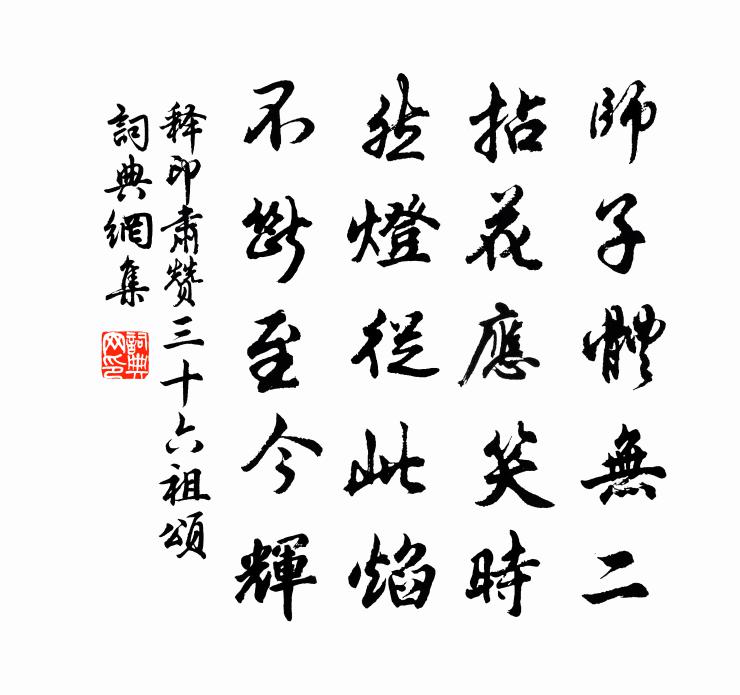 師子體無二
拈花應笑時
然燈從此焰
不斷至今輝
释印肅贊三十六祖頌
詞典網集
詞典
网印